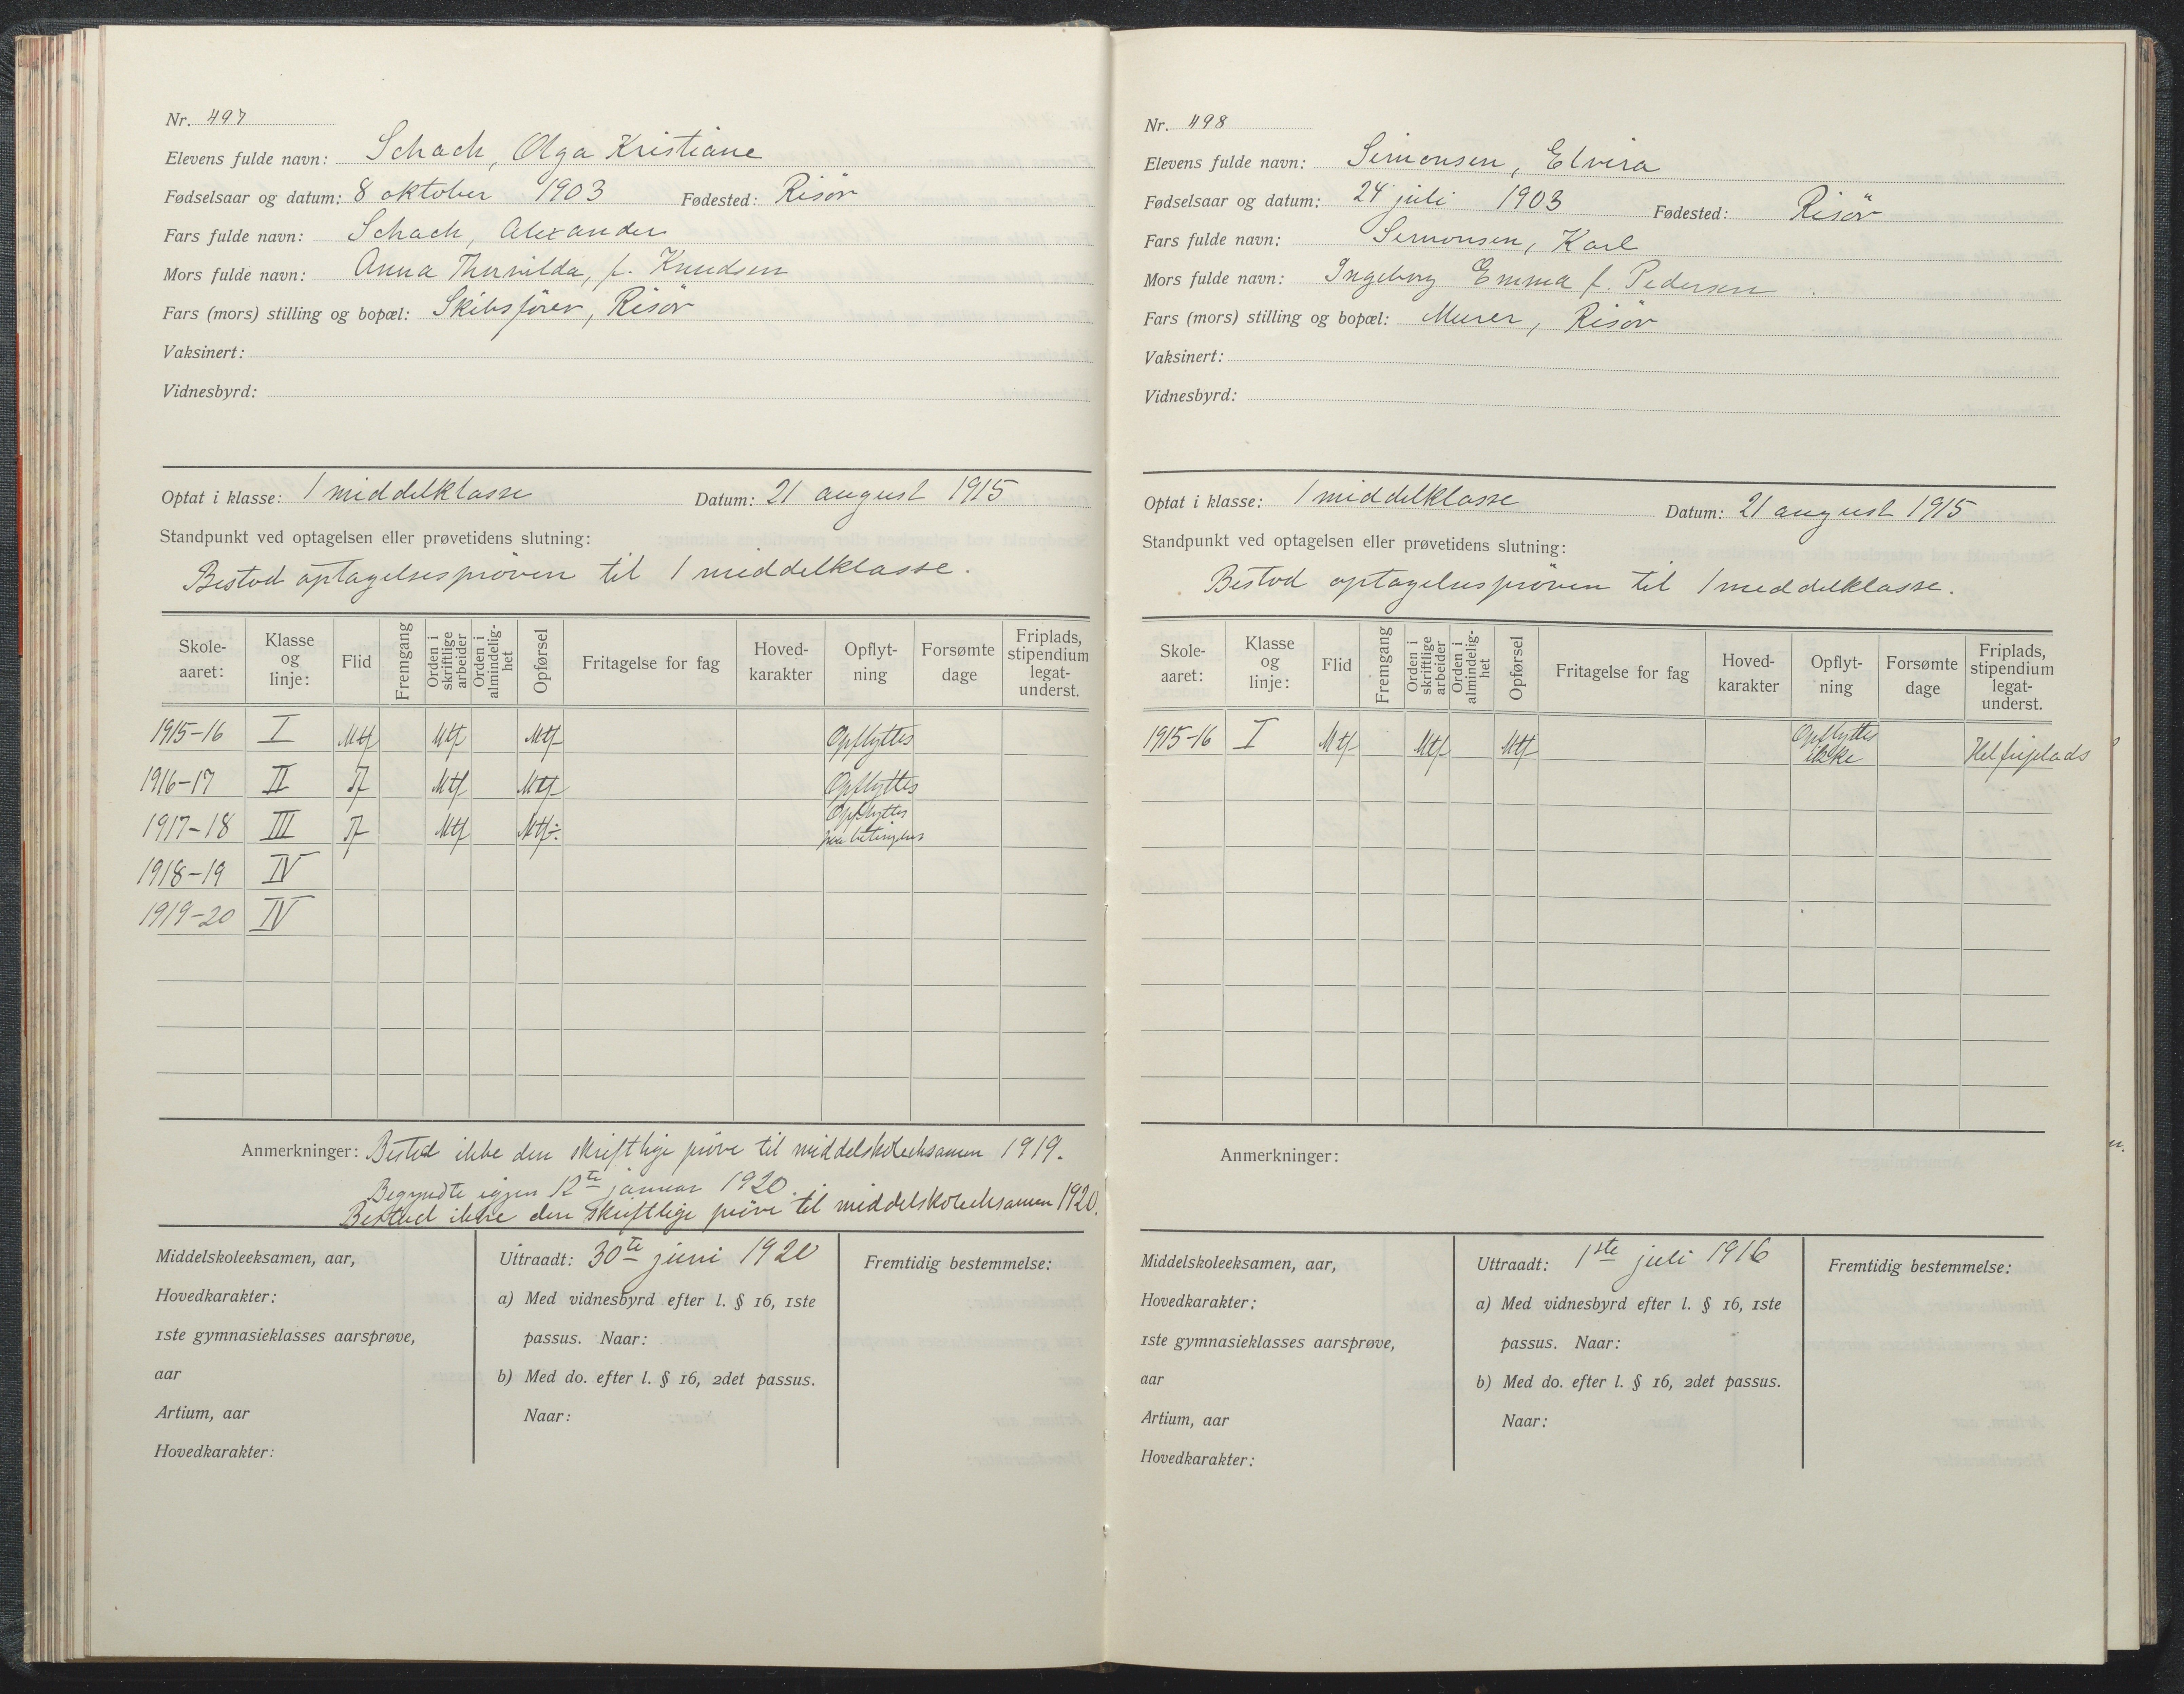 Nr. 497
Elevens fulde navn: Schach, Olga Kristiane
Fødselsaar og datum: 8 oktober 1903 Fødested: Risör
Fars fulde navn: Schach, Alexander
Mors fulde navn: Anna Thorvilda, f. Knudsen
Fars (mors) stilling og bopæl: Skibsfører, Risör
Vaksinert:
Vidnesbyrd:
Optat i klasse: 1 middelklasse Datum: 21 august 1915
Standpunkt ved optagelsen eller prøvetidens slutning:
Bestod optagelsesprøven til 1 middelklasse.
Skole-aaret: Klasse og linje: Flid Fremgang Orden i skriftlige arbeider Orden i almindelig-het Opførsel Fritagelse for fag Hoved-karakter Opflyt-ning Forsømte dage Friplads, stipendium legat-underst.
1915-16 I Mtf Mtf Mtf Opflyttes
1916-17 II Tf Mtf Mtf Opflyttes
1917-18 III Tf Mtf Mtf÷ Opflyttes paa betingelser
1918-19 IV
1919-20 IV
Anmerkninger: Bestod ikke den skriftlige prøve til middelskoleeksamen 1919.
Begyndte igjen 12te januar 1920.
Bestod ikke den skriftlige prøve til middelskoleeksamen 1920.
Middelskoleeksamen, aar,
Hovedkarakter:
1ste gymnasieklasses aarsprøve,
aar
Artium, aar
Hovedkarakter:
Uttraadt: 30te juni 1920
a) Med vidnesbyrd efter l. § 16, 1ste
passus. Naar:
b) Med do. efter l. § 16, 2det passus.
Naar:
Fremtidig bestemmelse:
Nr. 498
Elevens fulde navn: Simonsen, Elvira
Fødselsaar og datum: 24 juli 1903 Fødested: Risör
Fars fulde navn: Simonsen, Karl
Mors fulde navn: Ingeborg Emma f. Pedersen
Fars (mors) stilling og bopæl: Murer, Risör
Vaksinert:
Vidnesbyrd:
Optat i klasse: 1 middelklasse Datum: 21 august 1915
Standpunkt ved optagelsen eller prøvetidens slutning:
Bestod optagelsesprøven til 1 middelklasse.
Skole-aaret: Klasse og linje: Flid Fremgang Orden i skriftlige arbeider Orden i almindelig-het Opførsel Fritagelse for fag Hoved-karakter Opflyt-ning Forsømte dage Friplads, stipendium legat-underst.
1915-16 I Mtf Mtf Mtf Opflyttes ikke Hel friplads
Anmerkninger:
Middelskoleeksamen, aar,
Hovedkarakter:
1ste gymnasieklasses aarsprøve,
aar
Artium, aar
Hovedkarakter:
Uttraadt: 1ste juli 1916
a) Med vidnesbyrd efter l. § 16, 1ste
passus. Naar:
b) Med do. efter l. § 16, 2det passus.
Naar:
Fremtidig bestemmelse: